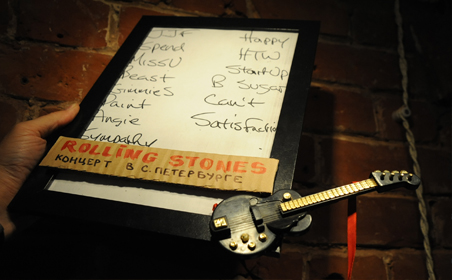 JJF
Spend
MissU
Beast
GimmieS
Paint
Angie
Sympathy
Happy
HTW
StartUp
B Sugar
Can't
Satisfaction
ROLLING STONES
КОНЦЕРТ В С. ПЕТЕРБУРГЕ